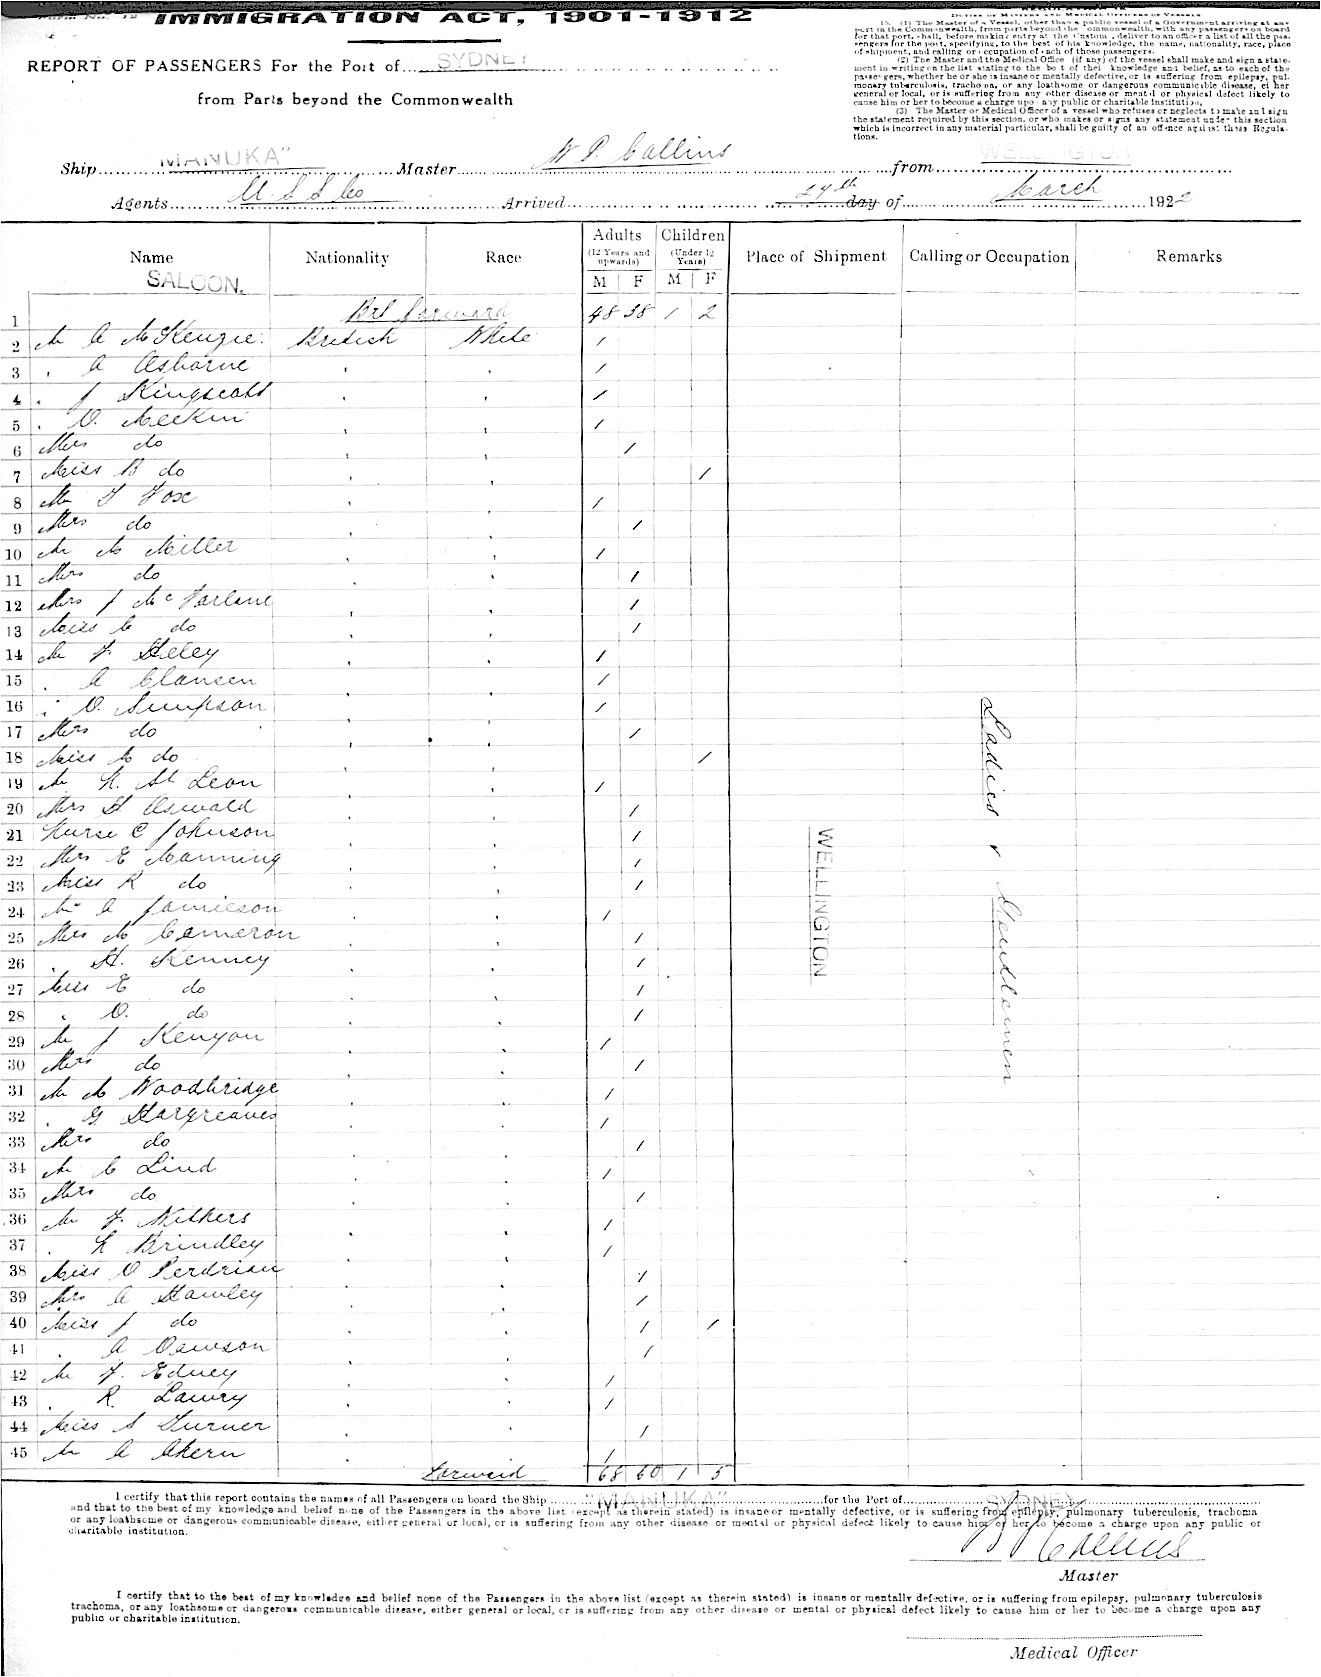 Form No. 12
IMMIGRATION ACT, 1901-1912
REPORT OF PASSENGERS For the Port of SYDNEY
from Parts beyond the Commonwealth
DUTIES OF MASTERS AND MEDICAL OFFICERS OF VESSELS
(1) The Master of a Vessel, other than a public vessel of a Government arriving at any
port in the Commonwealth, from parts beyond the Commonwealth, with any passengers on board
for that port, shall, before making entry at the Custom , deliver to an officer a list of all the pas-
sengers for the post, specifying, to the best of his knowledge, the name, nationality, race, place
of shipment, and calling or occupation of each of those passengers.
(2) The Master and the Medical Office (if any) of the vessel shall make and sign a state-
ment in writing on the list stating to the best of their knowledge and belief, as to each of the
passengers, whether he or she is insane or mentally defective, or is suffering from epilepsy, pul-
monary tuberculosis, trachoma, or any loathsome or dangerous communicable disease, either
general or local, or is suffering from any other disease or mental or physical defect likely to
cause him or her to become a charge upon any public or charitable institution,
(3) The Master or Medical Officer of a vessel who refuses or neglects to make and sign
the statement required by this section, or who makes or signs any statement under this section
which is incorrect in any material particular, shall be guilty of an offence against these Regula-
tions.
Ship "MANUKA" Master W P. Collins from WELLINGTON
Agents U S S Co Arrived 29th day of March 1922
Name Nationality Race Adults (12 Years and upwards) M F Children (Under 12 Years) M F Place of Shipment Calling or Occupation Remarks
SALOON.
1 Brt forward 48 38 1 2
2 Mr A McKenzie British White 1
3 " A Osborne " " 1
4 " J Kingscott " " 1
5 " O. Meekin " " 1
6 Mrs do " " 1
7 Miss B do " " 1
8 Mr T Fox " " 1
9 Mrs do " " 1
10 Mr M Miller " " 1
11 Mrs do " " 1
12 Mrs J McFarlane " " 1
13 Miss C do " " 1
14 Mr F. Heley " " 1
15 " A Clansen " " 1
16 " O. Simpson " " 1
17 Mrs do " " 1
18 Miss M do " " 1
19 Mr N. St Leon " " 1
20 Mrs H Oswald " " 1
21 Nurse C Johnson " " 1
22 Mrs E Manning " " 1
23 Miss R do " " 1
24 Mr A Jamieson " " 1
25 Mrs M Cameron " " 1
26 " H. Kenney " " 1
27 Miss E do " " 1
28 " O. do " " 1
29 Mr J Kenyon " " 1
30 Mrs do " " 1
31 Mr M Woodbridge " " 1
32 " G Hargreaves " " 1
33 Mrs do " " 1
34 Mr C Lind " " 1
35 Mrs do " " 1
36 Mr F. Withers " " 1
37 " L Brindley " " 1
38 Miss O Perdriau " " 1
39 Mrs A Hawley " " 1
40 Miss J do " " 1 1
41 " A Dawson " " 1
42 Mr F. Edney " " 1
43 " R. Lawry " " 1
44 Miss S Turner " " 1
45 Mr A Ahern " " 1
WELLINGTON
Ladies & Gentlemen
Forward 68 60 1 5
I certify that this report contains the names of all Passengers on board the Ship "MANUKA" for the Port of SYDNEY
and that to the best of my knowledge and belief none of the Passengers in the above list (except as therein stated) is insane or mentally defective, or is suffering from epilepsy, pulmonary tuberculosis, trachoma
or any loathsome or dangerous communicable disease, either general or local, or is suffering from any other disease or mental or physical defect likely to cause him or her to become a charge upon any public or
charitable institution.
W P Collins
Master
I certify that to the best of my knowledge and belief none of the Passengers in the above list (except as therein stated) is insane or mentally defective, or is suffering from epilepsy, pulmonary tuberculosis
trachoma, or any loathsome or dangerous communicable disease, either general or local, or is suffering from any other disease or mental or physical defect likely to cause him or her to become a charge upon any
public or charitable institution.
Medical Officer